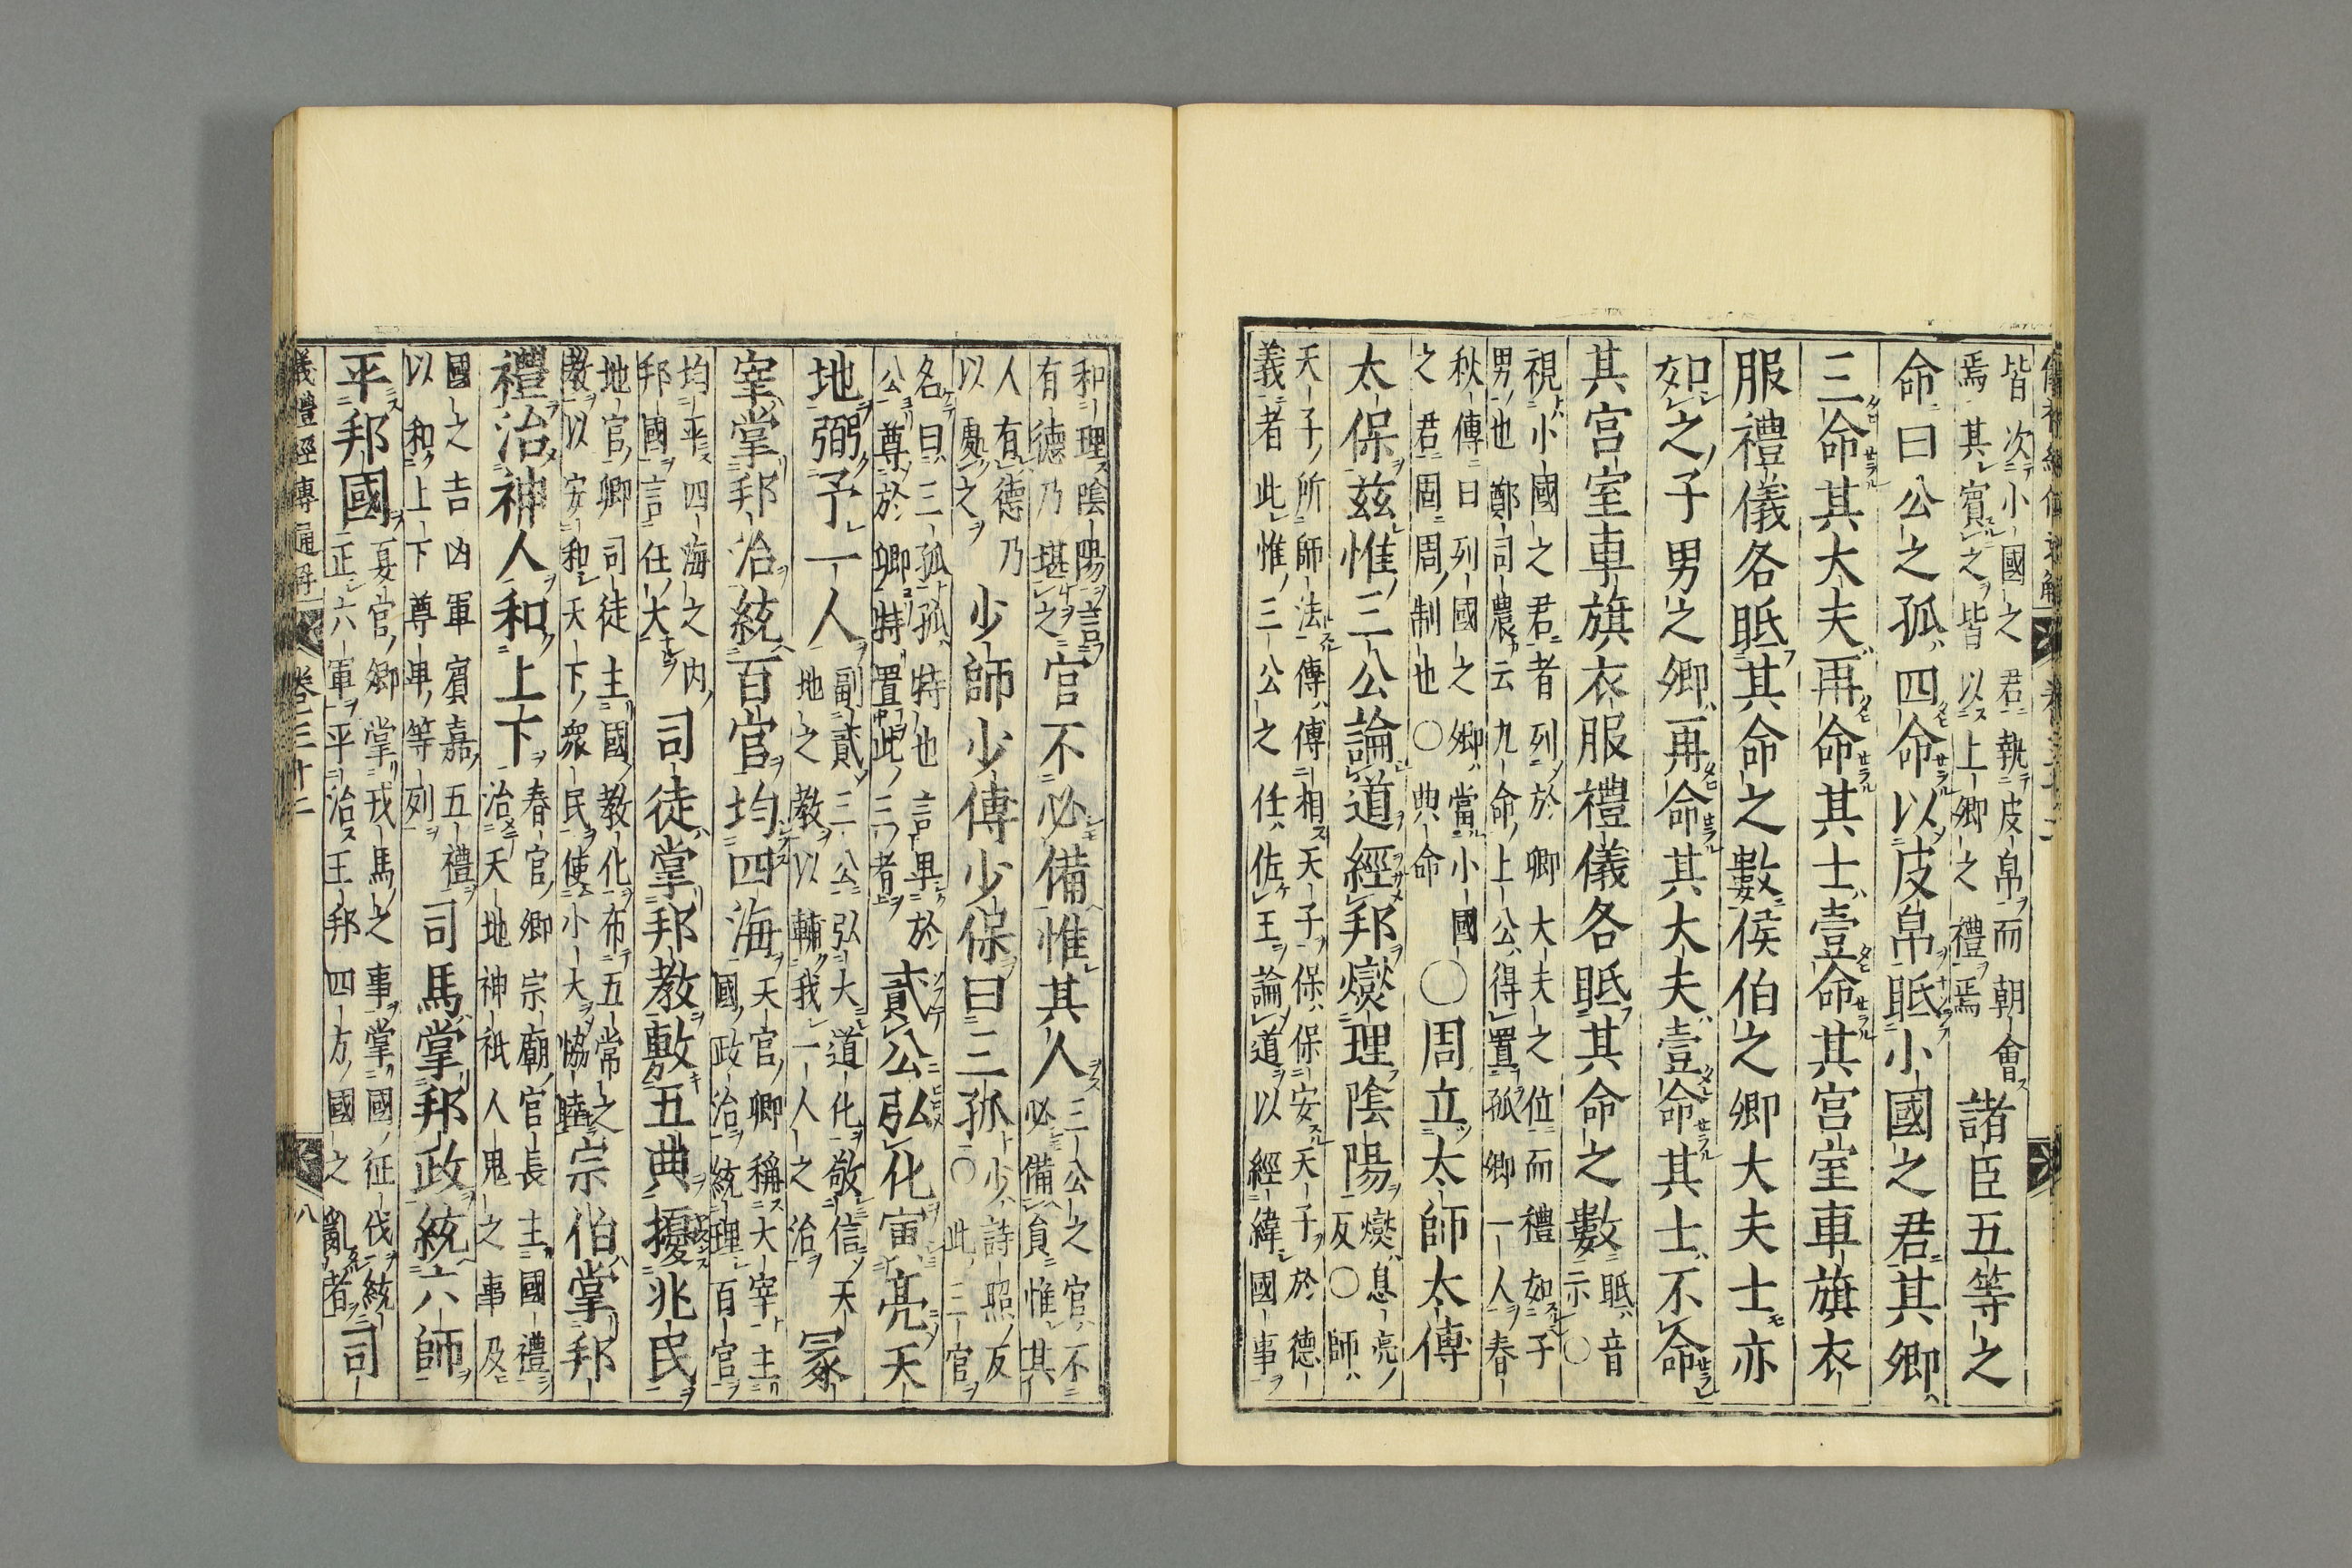 儀禮經傳通解 卷三十二
皆次小國之君執皮帛而朝會
焉其賓之皆以上卿之禮焉
諸臣五等之
命曰公之孤四命以皮帛眂小國之君其卿
三命其大夫再命其士壹命其宮室車旗衣
服禮儀各眂其命之數侯伯之卿大夫士亦
如之子男之卿再命其大夫壹命其士不命
其宮室車旗衣服禮儀各眂其命之數
眂音
示○
視小國之君者列於卿大夫之位而禮如子
男也鄭司農云九命上公得置孤卿一人春
秋傳曰列國之卿當小國
之君固周制也○典命
○周立太師太傅
太保茲惟三公論道經邦燮理陰陽
燮息亮
反○師
天子所師法傅傅相天子保保安天子於德
義者此惟三公之任佐王論道以經緯國事
和理陰陽言
有德乃堪之
官不必備惟其人
三公之官不
必備員惟其
人有德乃
以處之
少師少傅少保曰三孤
少詩照反
○此三官
名曰三孤孤特也言卑於
公尊於卿特置此三者
貳公弘化寅亮天
地弼予一人
副貳三公弘大道化敬信天
地之教以輔我一人之治
冢
宰掌邦治統百官均四海
天官卿稱大宰主
國政治統理百官
均平四海之內
邦國言任大
司徒掌邦教敷五典擾兆民
地官卿司徒主國教化布五常之
教以安和天下衆民使小大協睦
宗伯掌邦
禮治神人和上下
春官卿宗廟官長主國禮
治天地神祇人鬼之事及
國之吉凶軍賓嘉五禮
以和上下尊卑等列
司馬掌邦政統六師
平邦國
夏官卿掌戎馬之事掌國征伐統
正六軍平治王邦四方國之亂者
司
儀禮經傳通解 卷三十二 八